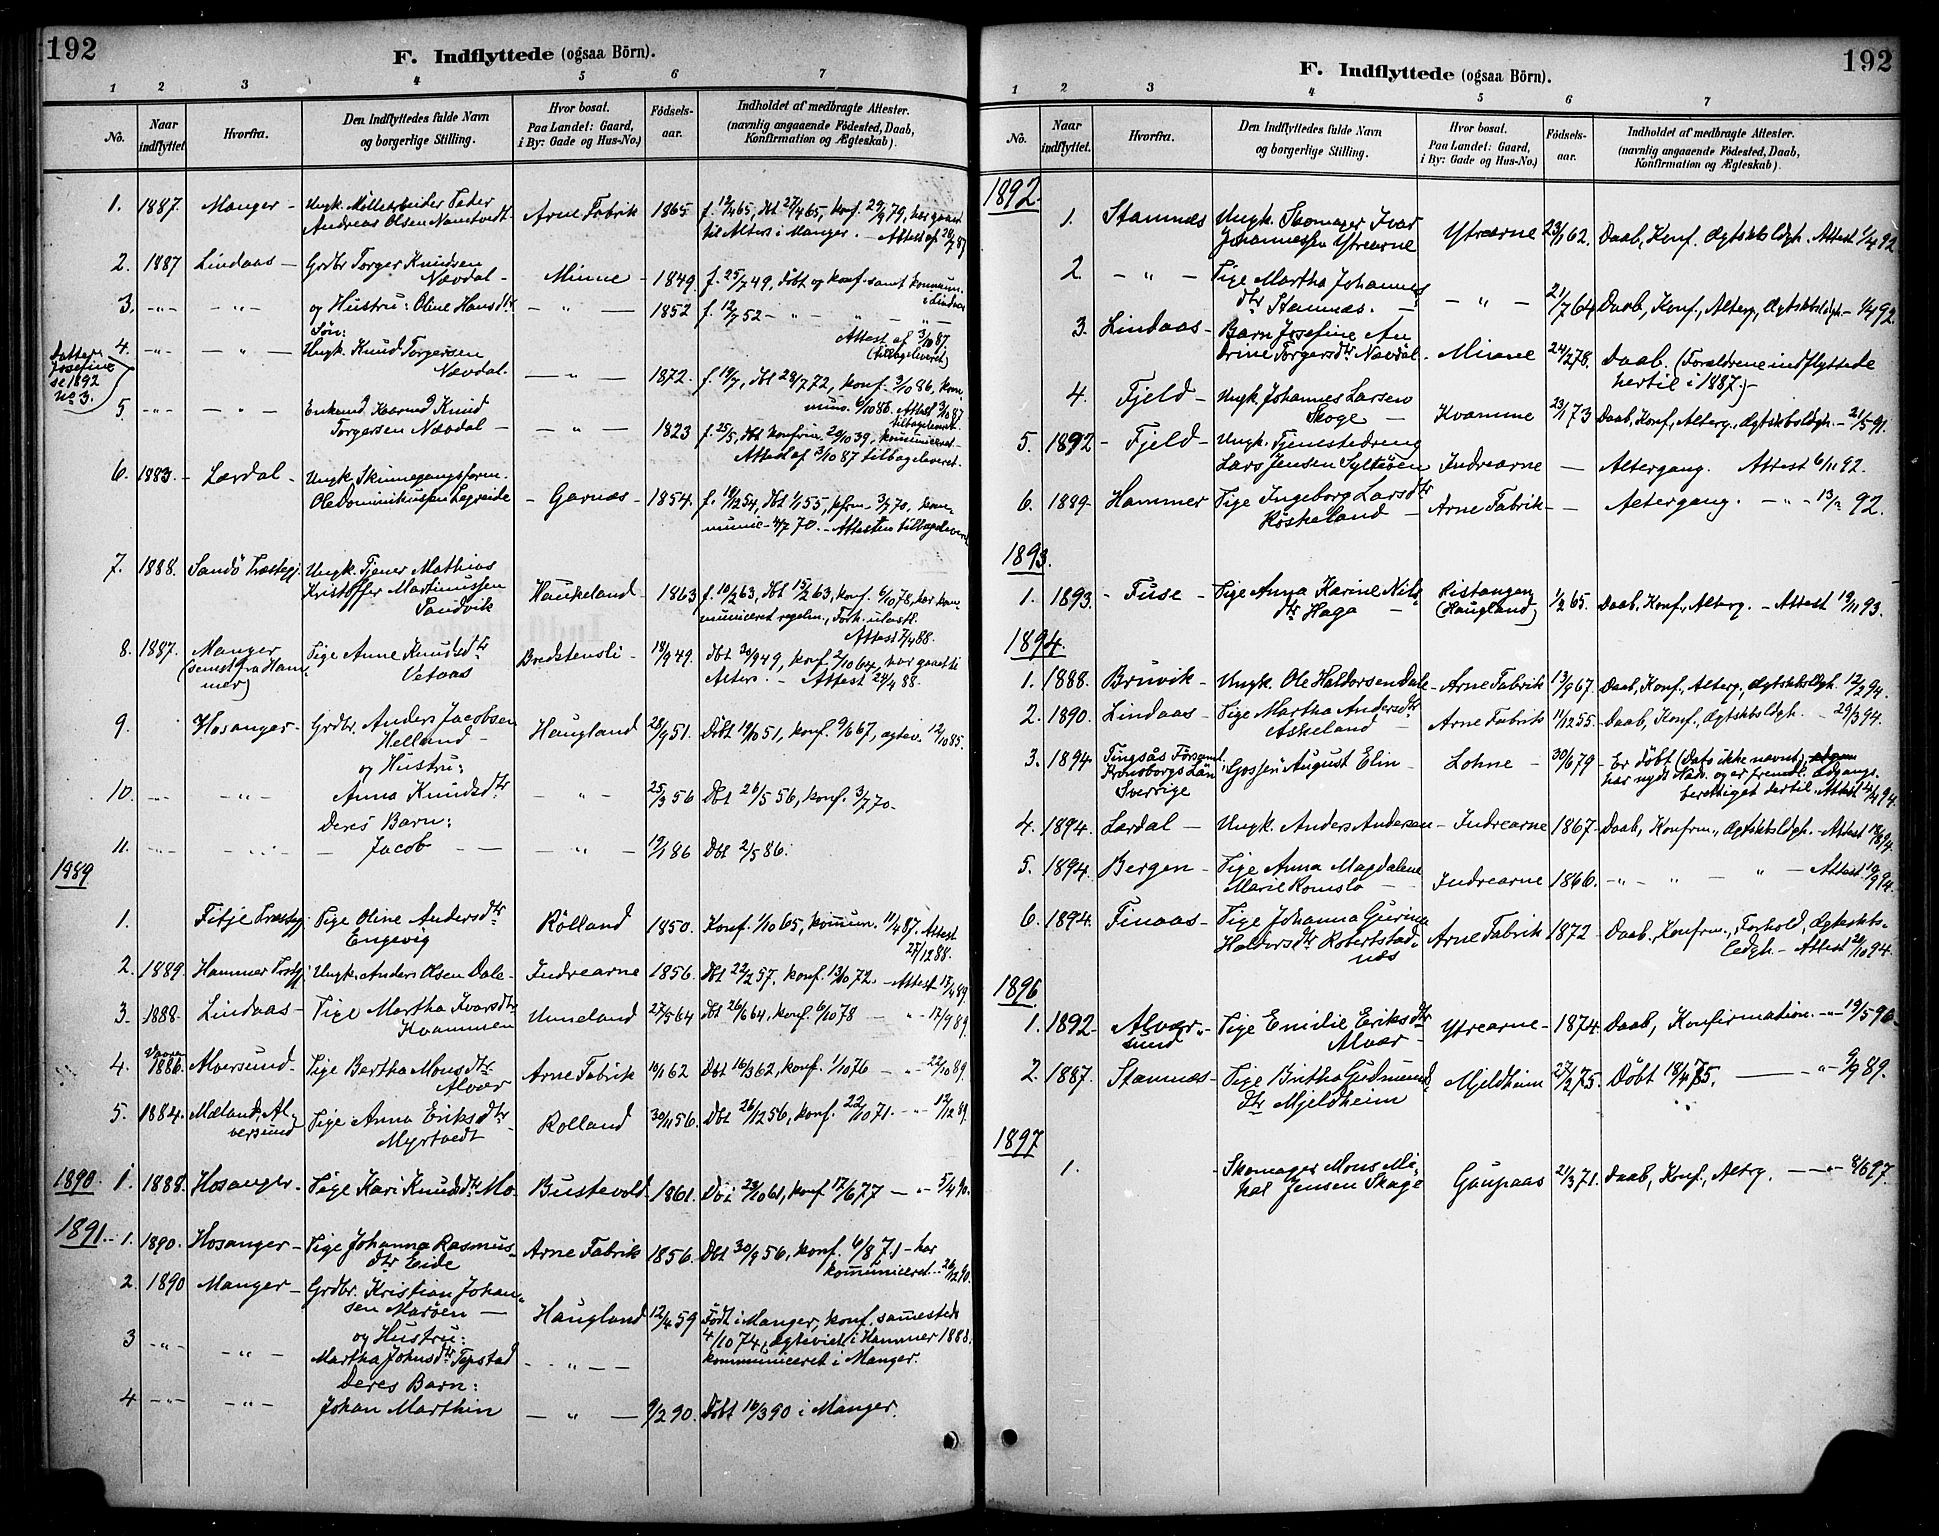 192
F. Indflyttede (ogsaa Börn).
1 2 3 4 5 6 7
No. Naar indflyttet Hvorfra. Den Indflyttedes fulde Navn og borgerlige Stilling. Hvor bosat. Paa Landet: Gaard, i By: Gade og Hus-No.) Födsels-aar. Indholdet af medbragte Attester. (navnlig angaaende Födested, Daab, Konfirmation og Ægteskab).
1. 1887. Manger - Ungk. Möllearbeider Peder
Andreas Olsen Namtvedt - Arne Fabrik - 1865 f. 12/4 65, dbt 27/4 65, konf. 29/9 79, har gaaet
til Alters i Manger. - Attest af 20/7 87
2. 1887 Lindaas - Grdbr Torger Knudsen
Nævdal - Minne - 1849. f. 25/7 49, döbt og konf. samt kommun.
i Lindaas
3. -"- -"- og Hustru: Oline Hansdtr - " - 1852 f. 12/7 52 - " - " - " -
Sön: Attest af 3/10 87.
(tilbageleveret)
Datter Josefine se 1892 No 3.
4. -"- - " - Ungk. Knud Torgersen
Nævdal. - " - 1872. f. 19/7, dbt 28/7 72, konf. 3/10 86, kom-
mun. 6/10 86. Attest 3/10 87
tilbageleveret.
5 -"- - " - Enkemd. Kaarmd Knud
Torgersen Nævdal - - " - 1823 f. 25/5, dbt konfirm. 20/10 39, kommuniceret -
Attest af 3/10 87 tilbageleveret.
6. 1883. - Lærdal - Ungk. Skinnegangsform.
Ole Dominikussen Lægreide - Garnæs - 1854. f. 19/12 54, dbt 1/1 55, kfrm - 3/7 70, kom-
munic - 4/7 70. - Attesten tilbageleveret
7. 1888. Sandö Præstegj. Ungk. Tjener Mathias
Kristoffer Martinussen
Sandvik Haukeland - 1863 f. 10/2 63, dbt 15/2 63, konf. 6/10 78, har kom-
municeret regelm., Forh. ulastl.
Attest 7/4 88.
8. 1887. Manger
(senest fra Ham-
mer) Pige Anne Knudsdtr
Vetaas Bredstensli - 18/9 49. dbt 30/9 49, konf. 2/10 64, har gaaet ti
Alters. - Attest 24/4 88.
9. Hosanger - Grdbr. Anders Jacobsen
Helland - Haugland 28/9 51. Döbt 19/10 51, konf. 9/6 67, ægtev. 12/10 85.
og Hustru:
10. -"- -"- Anna Knudsdtr - " - 25/3 56 Dbt 26/5 56, konf. 3/7 70.
Deres Barn:
11. Jacob - " - 19/1 86 Dbt 2/5 86.
1889
1. Fitje Præstegj. Pige Oline Andersdtr
Engevig Rölland 1850. Konf. 1/10 65, kommun. 11/4 87. Attest
27/12 88.
2. 1889. Hammer Prstgj. Ungk. Anders Olsen Dale - Indrearne 1856. dbt 22/2 57, konf. 13/10 72. - Attest 17/4 89.
3. 1888. Lindaas - Pige Martha Ivarsdtr
Kvammen Unneland 27/5 64 Dbt 26/6 64, konf. 6/10 78 - " 17/9 89.
4. 1886. Alversund - Pige Bertha Monsdtr
Alvær Arne Fabrik 10/1 62 Dbt 16/3 62, konf. 1/10 76 - " - 22/10 89.
5. 1884. Mæland, Al-
versund Pige Anna Eriksdtr
Myrtvedt Rolland 30/11 56. Dbt 26/12 56, konf. 22/10 71. - " 12/12 89.
1890. 1. 1888. Hosanger - Pige Kari Knudsdtr Mo - Bustevold 1861. Döt 28/10 61, konf 17/6 77 - " - 5/4 90.
1891. - 1. 1890. Hosanger - Pige Johanna Rasmus-
dtr Eide Arne Fabrik 1856. Dbt 30/9 56, konf. 6/8 71 - har
kommuniceret - 26/12 90.
2. 1890 Manger - Grdbr. Kristian Johan-
sen Maröen - Haugland 12/4 59 Födt i Manger, konf. sammesteds
og Hustru: 4/10 74, ægteviet i Hammer 1888.
3 -"- -"- Martha Johnsdtr Tepstad - " - - kommuniceret i Manger.
Deres Barn:
4 -"- -"- Johan Marthin - " - 9/2 90. Döbt 16/3 90 i Manger.
F. Indflyttede (ogsaa Börn).
192
1 2 3 4 5 6 7
No. Naar indflyttet. Hvorfra. Den Indflyttedes fulde Navn og borgerlige Stilling. Hvor bosat. Paa Landet: Gaard, i By: Gade og Hus-No.) Födsels-aar. Indholdet af medbragte Attester. (navnlig angaaende Födested, Daab, Konfirmation og Ægteskab).
1892.
1. Stamnæs Ungk. Skomager Ivar
Johannessen Ytrearne Ytrearne 23/1 62. Daab, Konf. Ægtskbsldgh. Attest 1/4 92
2. - " - Pige Martha Johannes
dtr Stamnæs. - - " - 21/7 64 Daab, Konf., Alterg., Ægtskbsldgh. - 1/4 92.
3. Lindaas - Barn Josefine An
drine Torgersdtr Nævdal. Minne 24/2 78. Daab. (Forældrene indflyttede
hertil i 1887.) -
4. Fjeld - Ungk. Johannes Larsen
Skoge - Kvamme 23/1 73 Daab, Konf, Alterg., Ægtskbsldgh. - 21/5 91.
5. 1892 - Fjeld - Ungk. Tjenestedreng
Lars Jensen Syltöen Indrearne - Altergang. Attest 6/11 92.
6. 1889 - Hammer Pige Ingeborg Larsdtr
Röskeland - Arne Fabrik - - Altergang. - " - 13/11 92.
1893.
1. 1893. - Fuse - Pige Anna Karine Nils
dtr Haga - Ristangen
(Haugland) 1/2 65. Daab, Konf., Alterg. - Attest 19/11 93.
1894.
1. 1888. Bruvik - Ungk. Ole Haldorsen Dale - Arne Fabrik 13/9 67. Daab, Konf., Alterg., Ægtskbsldgh. 12/2 94.
2. 1890. Lindaas - Pige Martha Andersdtr
Askeland - Arne Fabrik 11/12 55. Daab, Konf., Ægtskbsldgh. - 29/3 94.
3. 1894 Tingsås Församl.
Kronobergs Län
Sverrige "Gossen" August Elin - Lohne - 30/6 79 - Er döbt (Dato ikke navnt),
har nydt Nadv. og er fremdl. adgangs-
berettiget dertil. Attest 2/4 94.
4. 1894. Lærdal - Ungk. Anders Andersen - Indrearne 1867. Daab, Konfrm., Ægtskbsldgh. - Attest 18/8 94.
5. 1894. Bergen - Pige Anna Magdalene
Marie Romslo - Indrearne 1866. - " - " - " - Attest 10/9 94.
6. 1894. Finaas - Pige Johanna Gurine
Haldorsdtr Robertstad-
næs Arne Fabrik 1872 - Daab, Konfrm., Forhold, Ægteskbs-
ledgh. - Attest 20/10 94.
1896.
1. 1892 - Alvær-
sund Pige Emilie Eriksdtr
Alvær - Ytrearne - 1874. Daab, Konfirmation. - " - 19/5 90 -
2. 1887. Stamnæs - Pige Britha Gudmund
dtr Mjeldheim Mjeldheim 27/2 75. Döbt 18/4 75. - " - 9/9 89.
1897
1. - Skomager Mons Mi-
kal Jensen Skage Gaupaas 21/3 71. Daab, Konf., Altrg. - " - 8/6 97.